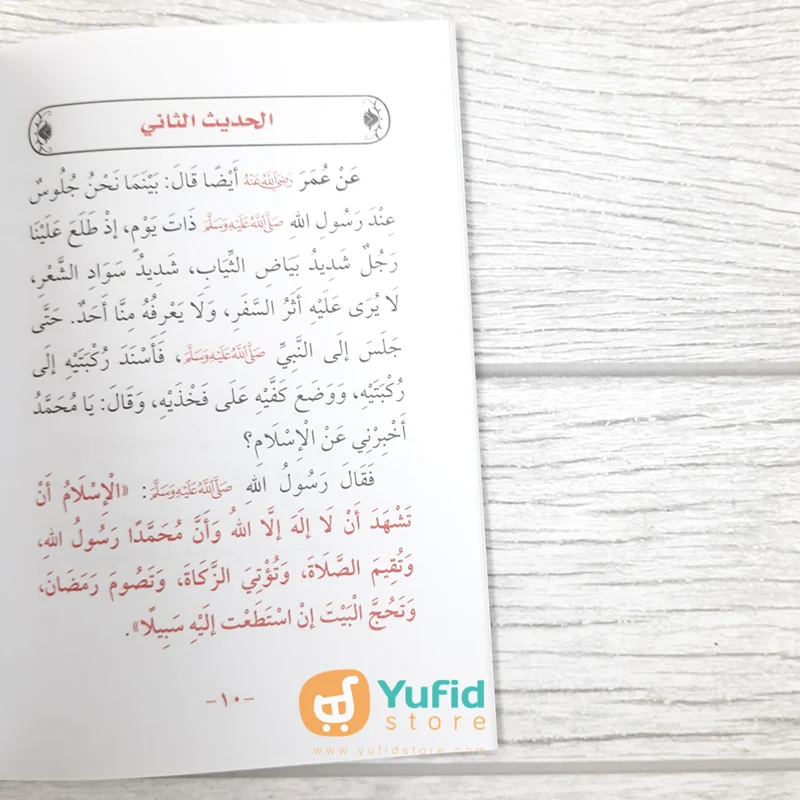 الحديث الثاني
عَنْ عُمَرَ رَضِيَ اللَّهُ عَنْهُ أَيْضًا قَالَ: بَيْنَمَا نَحْنُ جُلُوسٌ
عِنْدَ رَسُولِ اللهِ صَلَّى اللَّهُ عَلَيْهِ وَسَلَّمَ ذَاتَ يَوْمٍ، إِذْ طَلَعَ عَلَيْنَا
رَجُلٌ شَدِيدُ بَيَاضِ الثِّيَابِ، شَدِيدُ سَوَادِ الشَّعْرِ،
لَا يُرَى عَلَيْهِ أَثَرُ السَّفَرِ، وَلَا يَعْرِفُهُ مِنَّا أَحَدٌ. حَتَّى
جَلَسَ إِلَى النَّبِيِّ صَلَّى اللَّهُ عَلَيْهِ وَسَلَّمَ، فَأَسْنَدَ رُكْبَتَيْهِ إِلَى
رُكْبَتَيْهِ، وَوَضَعَ كَفَّيْهِ عَلَى فَخْذَيْهِ، وَقَالَ: يَا مُحَمَّدُ
أَخْبِرْنِي عَنْ الْإِسْلَامِ؟
فَقَالَ رَسُولُ اللهِ صَلَّى اللَّهُ عَلَيْهِ وَسَلَّمَ: «الْإِسْلَامُ أَنْ
تَشْهَدَ أَنْ لَا إِلَهَ إِلَّا اللهُ وَأَنَّ مُحَمَّدًا رَسُولُ اللهِ،
وَتُقِيمَ الصَّلَاةَ، وَتُؤْتِيَ الزَّكَاةَ، وَتَصُومَ رَمَضَانَ،
وَتَحُجَّ الْبَيْتَ إِنْ اسْتَطَعْت إِلَيْهِ سَبِيلًا».
-١٠-
Yufid
store
www.yufidstore.com